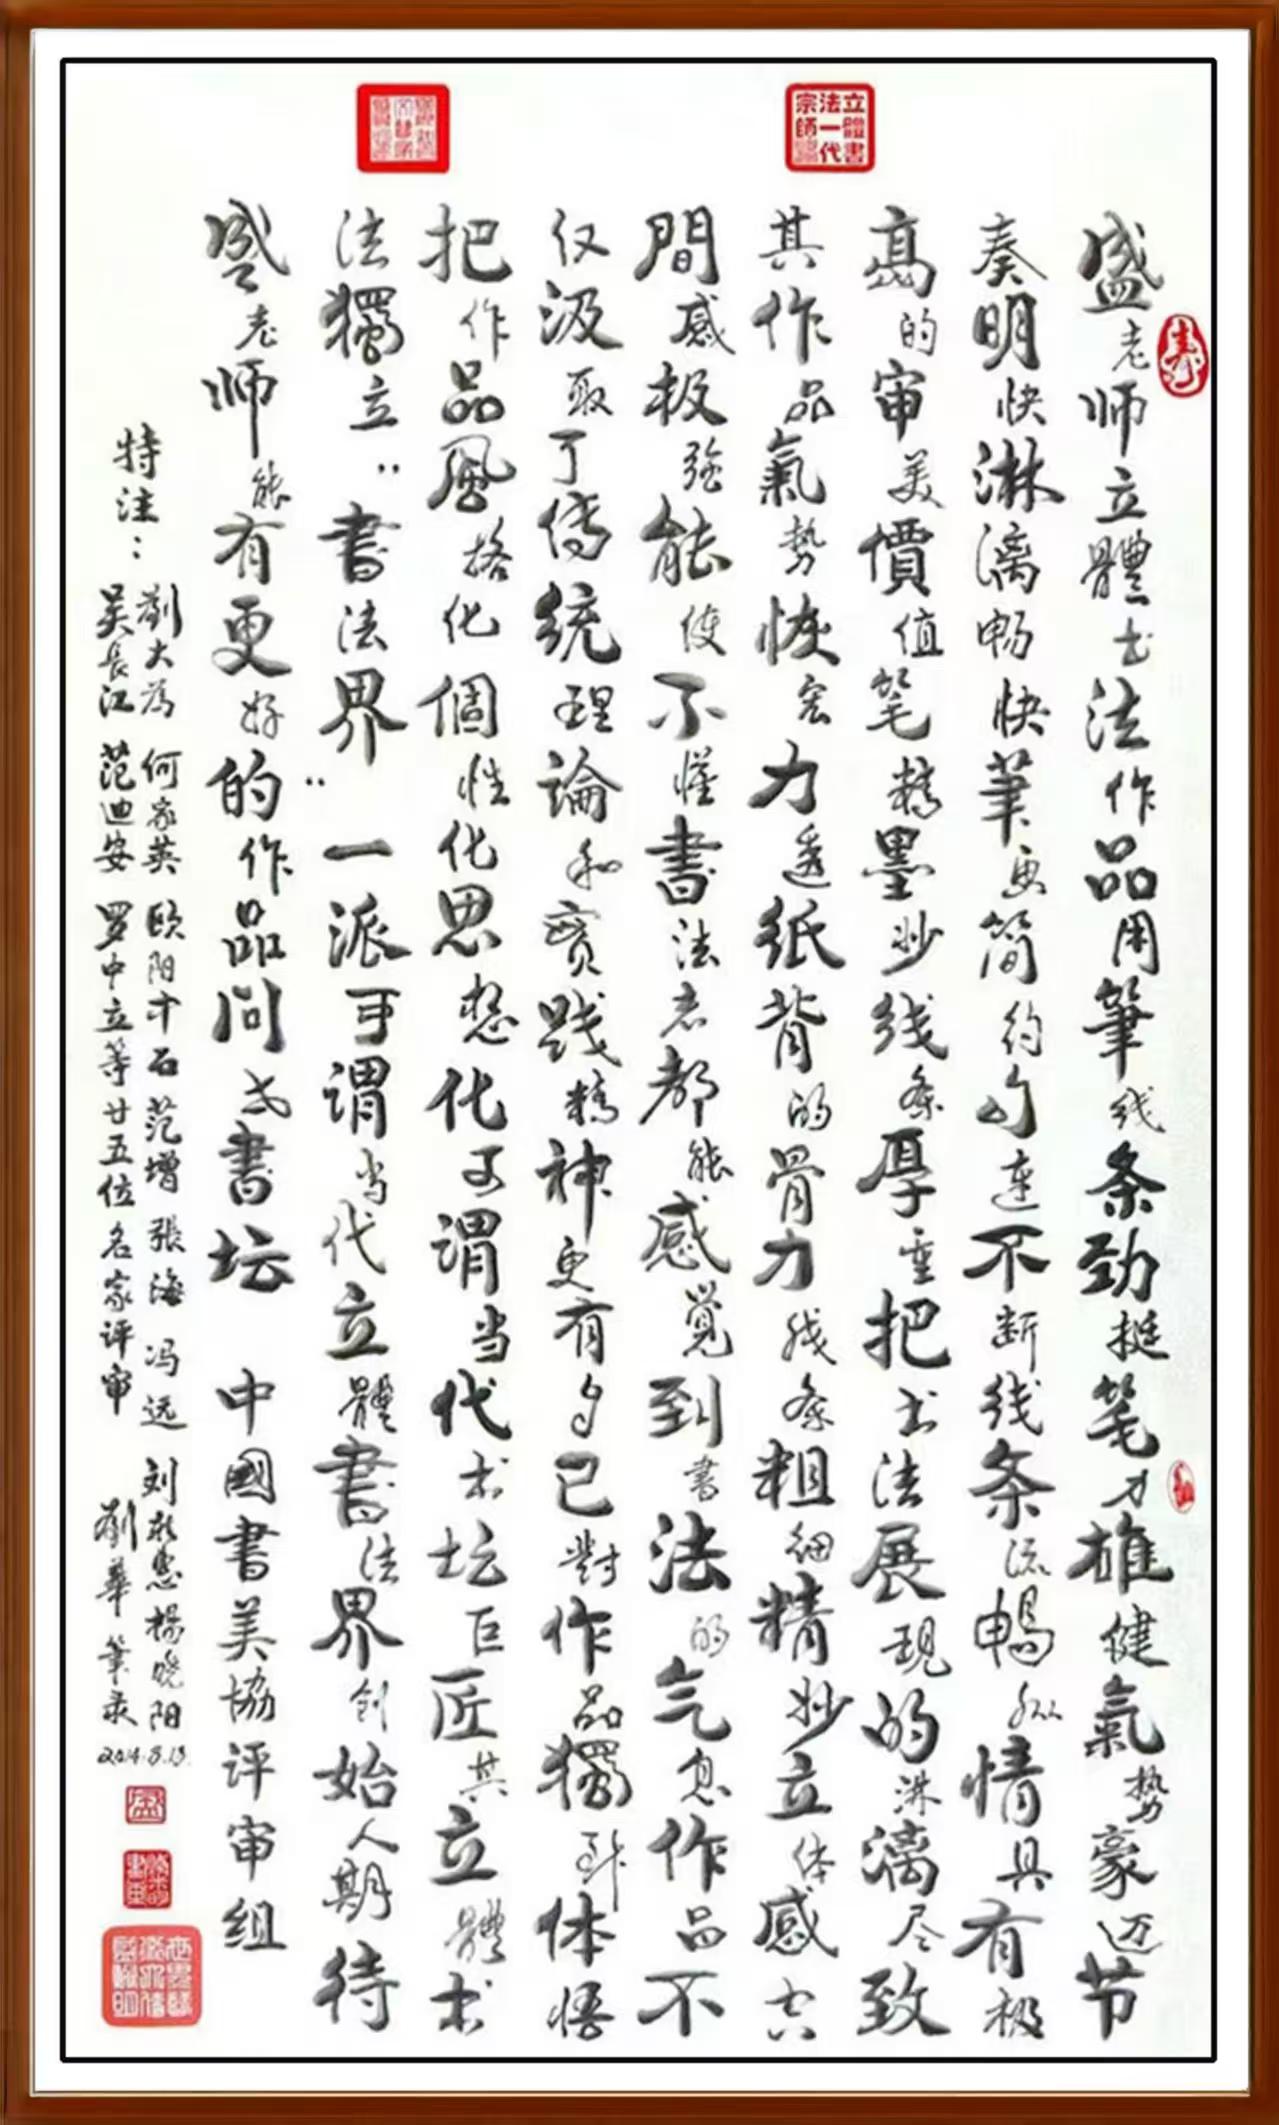 盛老师立體书法作品用筆线条劲挺笔力雄健氣势豪迈节
奏明快淋漓畅快筆意简约勾连不断线条流暢纵情具有极
高的审美價值笔精墨妙线条厚重把书法展現的淋漓尽致
其作品氣勢恢宏力透纸背的骨力线条粗细精妙立体感空
間感极强能使不懂書法者都能感覺到書法的气息作品不
仅汲取了传统理論和實践精神更有自已對作品獨到体悟
把作品風格化個性化思想化可谓当代书坛巨匠其立體书
法獨立"書法界"一派可谓当代立體書法界创始人期待
盛老师能有更好的作品问世書坛 中國書美協评审组
特注：
劉大为 何家英 欧阳中石 范增 張海 冯远 刘 杨晓阳
吴長江 范迪安 罗中立等廿五位名家评审 劉華 筆录
2014.8.13.
立體書法一代宗師